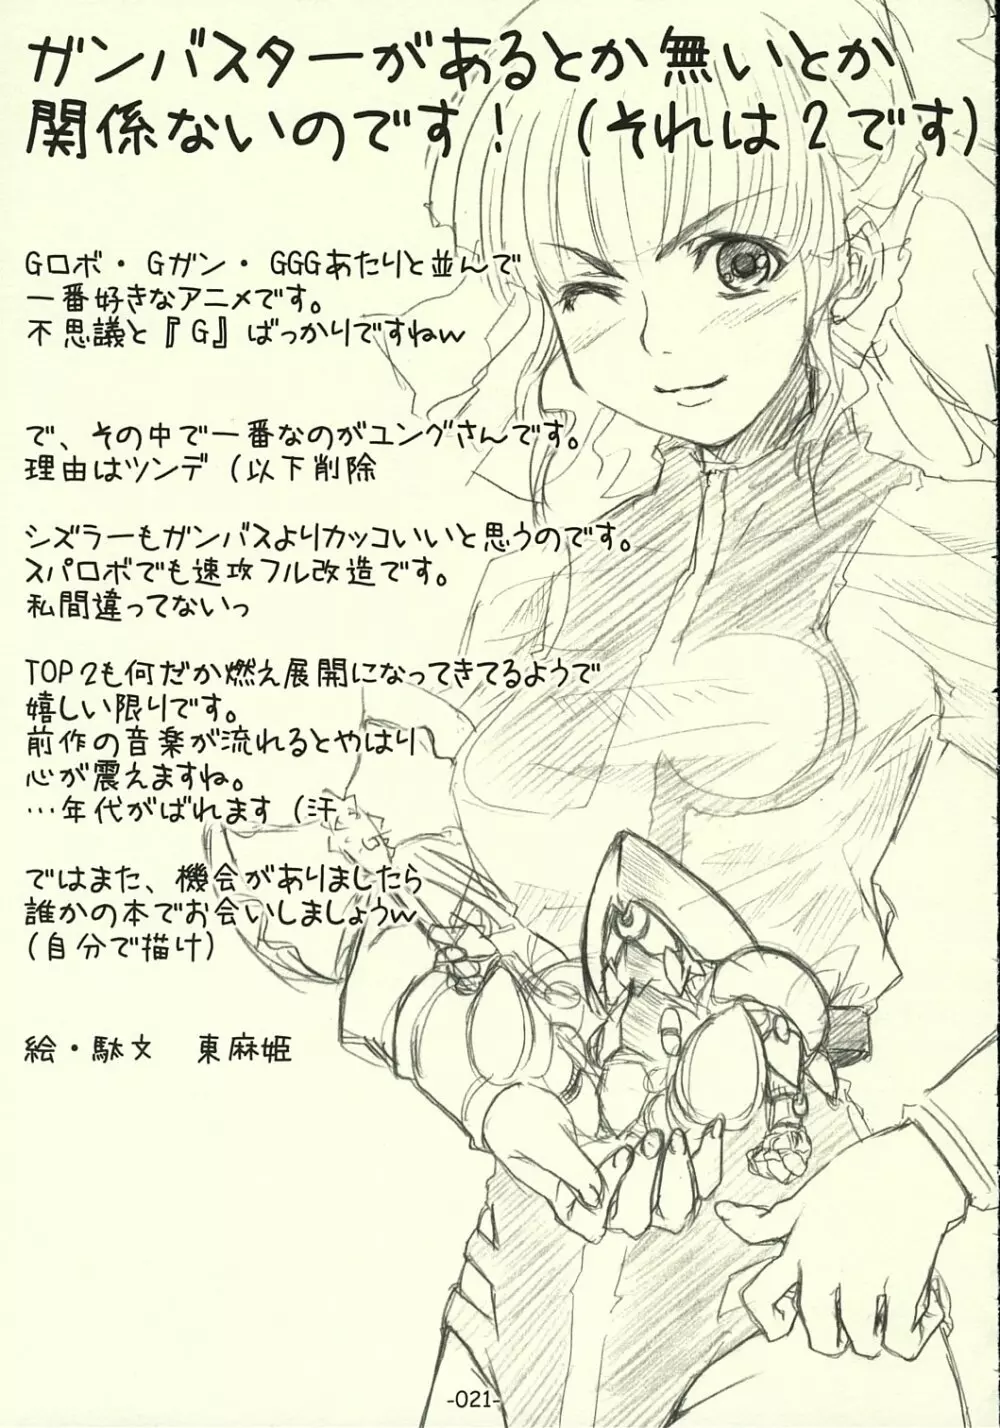 ガンバスターがあるとか無いとか
関係ないのです! (それは2です)
Gロボ・Gガン・GGGあたりと並んで
一番好きなアニメです。
不思議と『G』ばっかりですねw
で、その中で一番なのがユングさんです。
理由はツンデ(以下削除
シズラーもガンバスよりカッコいいと思うのです。
スパロボでも速攻フル改造です。
私間違ってないっ
TOP2も何だか燃え展開になってきてるようで
嬉しい限りです。
前作の音楽が流れるとやはり
心が震えますね。
…年代がばれます(汗
ではまた、機会がありましたら
誰かの本でお会いしましょうw
(自分で描け)
絵・駄文 東麻姫
-021-